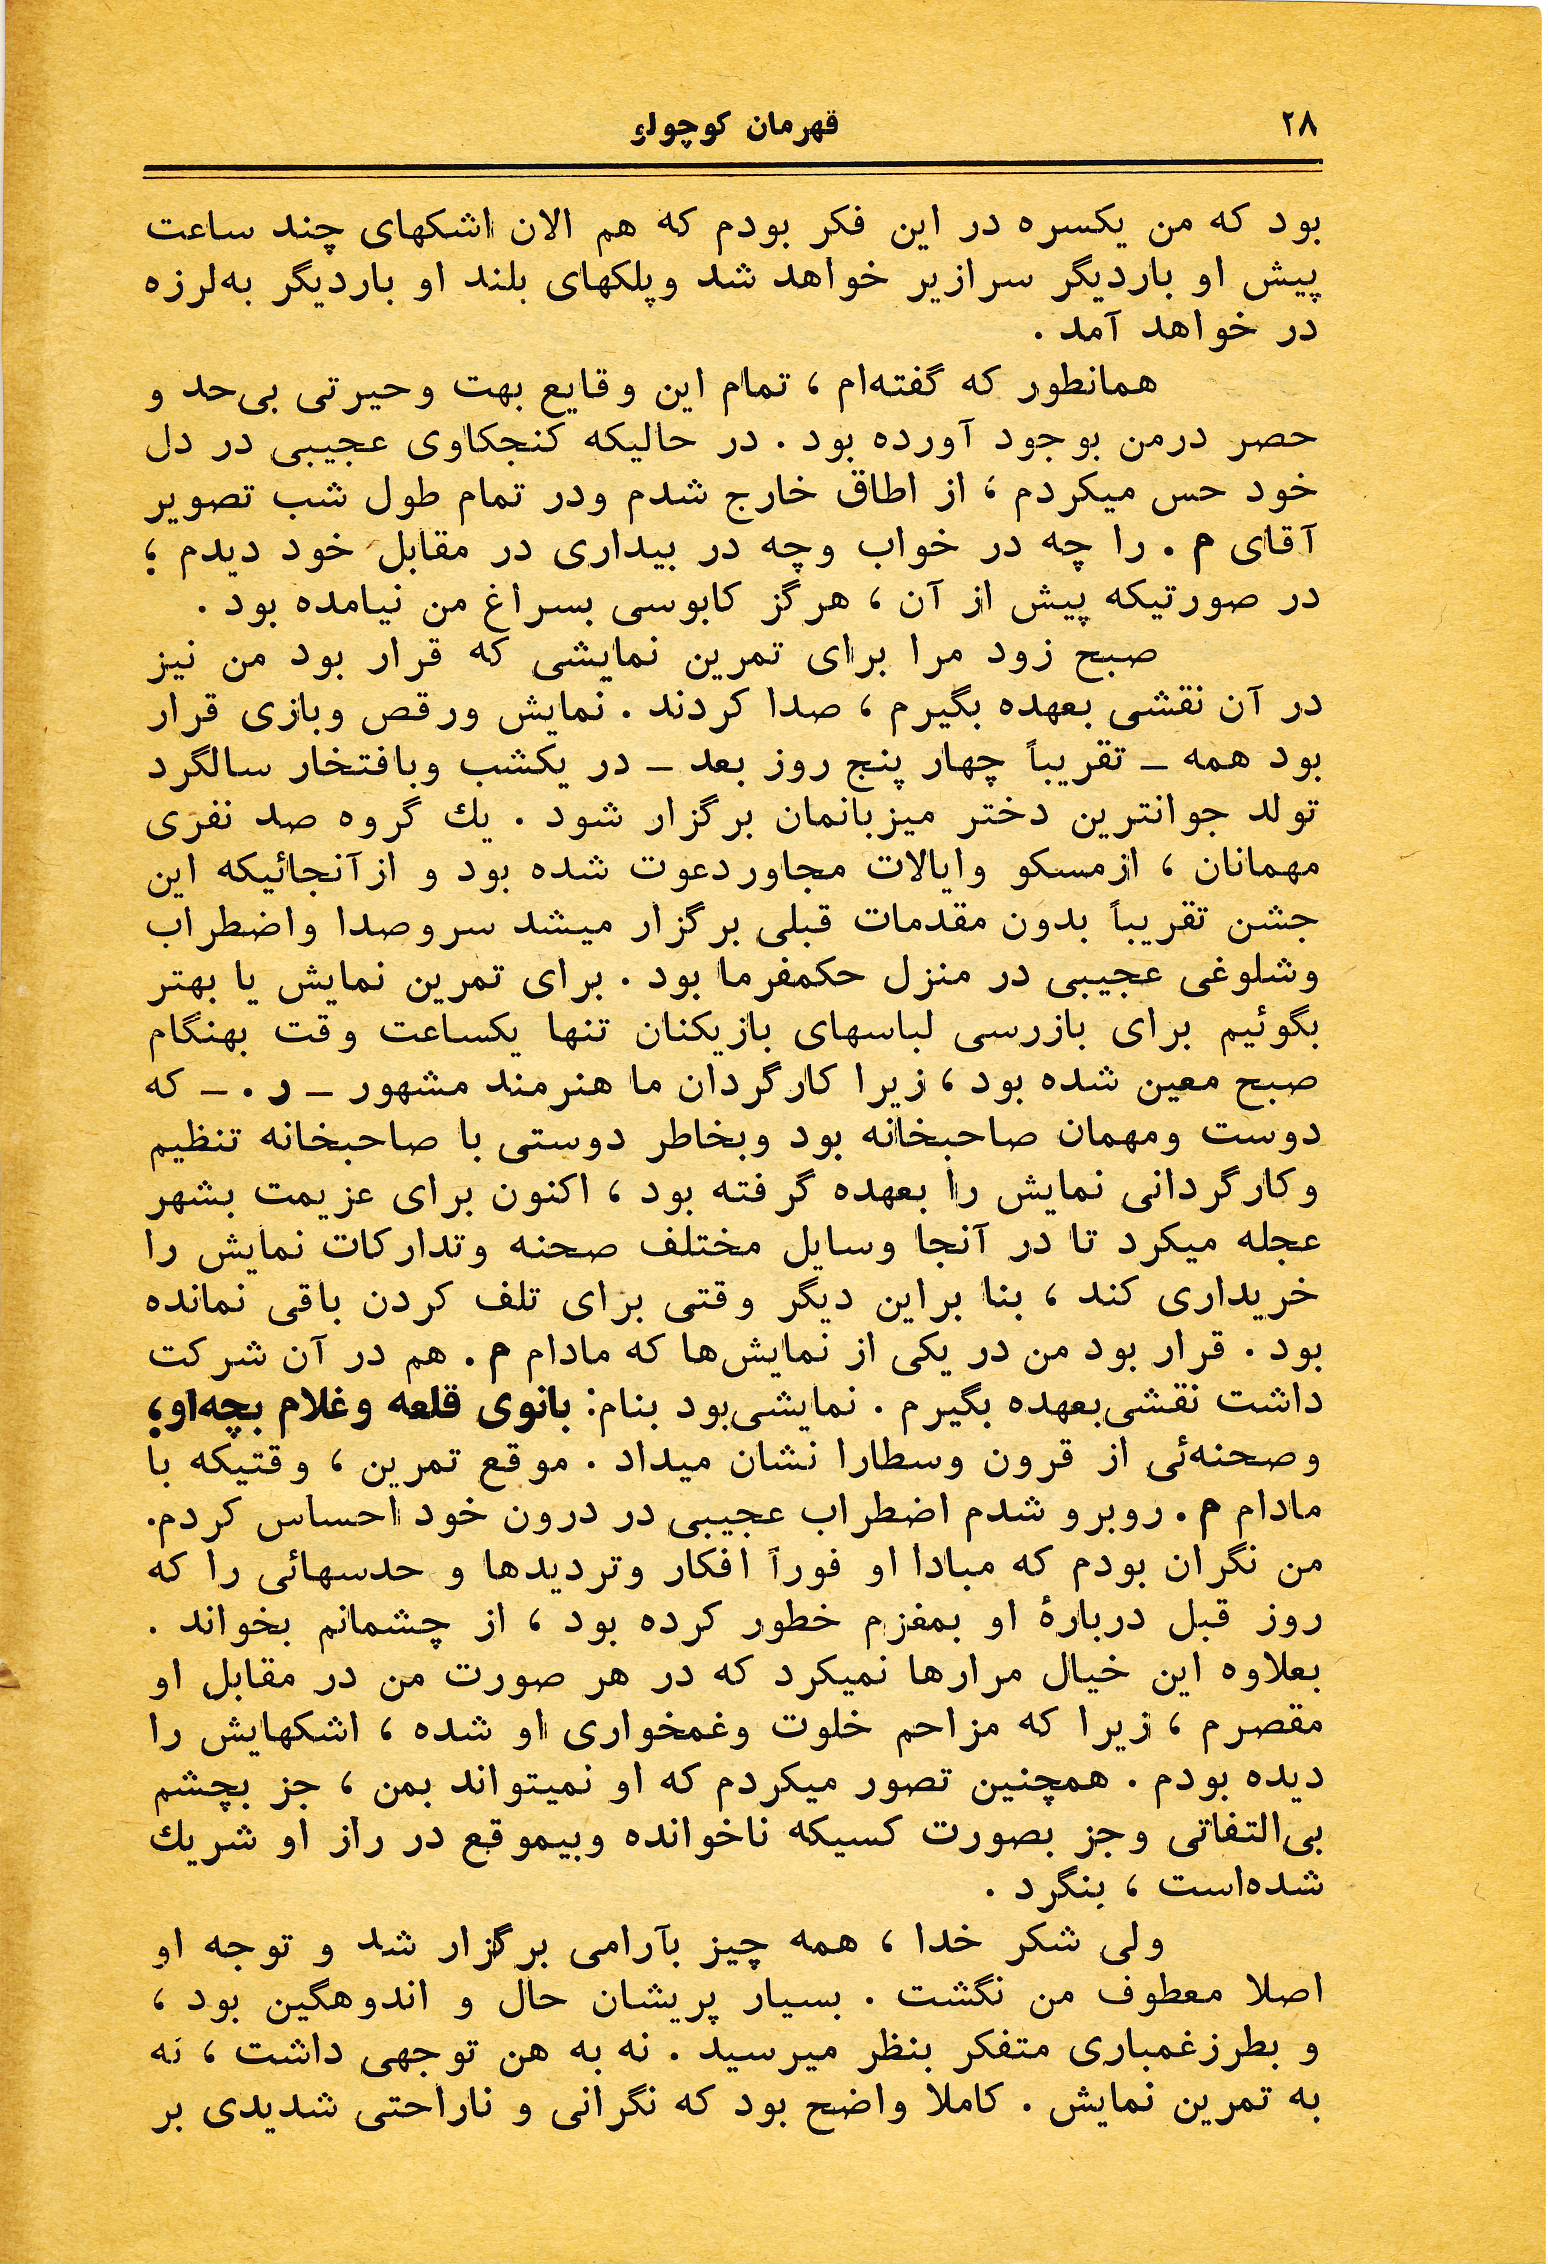 ۲۸
قهرمان کوچولو
بود که من یکسره در این فکر بودم که هم الان اشکهای چند ساعت
پیش او باردیگر سرازیر خواهد شد وپلکهای بلند او باردیگر به‌لرزه
در خواهد آمد .
همانطور که گفته‌ام ، تمام این وقایع بهت وحیرتی بی‌حد و
حصر درمن بوجود آورده بود . در حالیکه کنجکاوی عجیبی در دل
خود حس میکردم ، از اطاق خارج شدم ودر تمام طول شب تصویر
آقای م . را چه در خواب وچه در بیداری در مقابل خود دیدم ؛
در صورتیکه پیش از آن ، هرگز کابوسی بسراغ من نیامده بود .
صبح زود مرا برای تمرین نمایشی که قرار بود من نیز
در آن نقشی بعهده بگیرم ، صدا کردند . نمایش ورقص وبازی قرار
بود همه ـ تقریباً چهار پنج روز بعد ـ در یکشب وبافتخار سالگرد
تولد جوانترین دختر میزبانمان برگزار شود . یك گروه صد نفری
مهمانان ، ازمسکو وایالات مجاوردعوت شده بود و ازآنجائیکه این
جشن تقریباً بدون مقدمات قبلی برگزار میشد سروصدا واضطراب
وشلوغی عجیبی در منزل حکمفرما بود . برای تمرین نمایش یا بهتر
بگوئیم برای بازرسی لباسهای بازیکنان تنها یکساعت وقت بهنگام
صبح معین شده بود ، زیرا کارگردان ما هنرمند مشهور ـ ر . ـ که
دوست ومهمان صاحبخانه بود وبخاطر دوستی با صاحبخانه تنظیم
وکارگردانی نمایش را بعهده گرفته بود ، اکنون برای عزیمت بشهر
عجله میکرد تا در آنجا وسایل مختلف صحنه وتدارکات نمایش را
خریداری کند ، بنا براین دیگر وقتی برای تلف کردن باقی نمانده
بود . قرار بود من در یکی از نمایش‌ها که مادام م . هم در آن شرکت
داشت نقشی‌بعهده بگیرم . نمایشی‌بود بنام: بانوی قلعه وغلام بچه‌او؛
وصحنه‌ئی از قرون وسطارا نشان میداد . موقع تمرین ، وقتیکه با
مادام م . روبرو شدم اضطراب عجیبی در درون خود احساس کردم.
من نگران بودم که مبادا او فوراً افکار وتردیدها و حدسهائی را که
روز قبل دربارهٔ او بمغزم خطور کرده بود ، از چشمانم بخواند .
بعلاوه این خیال مرارها نمیکرد که در هر صورت من در مقابل او
مقصرم ، زیرا که مزاحم خلوت وغمخواری او شده ، اشکهایش را
دیده بودم . همچنین تصور میکردم که او نمیتواند بمن ، جز بچشم
بی‌التفاتی وجز بصورت کسیکه ناخوانده وبیموقع در راز او شریك
شده‌است ، بنگرد .
ولی شکر خدا ، همه چیز بآرامی برگزار شد و توجه او
اصلا معطوف من نگشت . بسیار پریشان حال و اندوهگین بود ،
و بطرزغمباری متفکر بنظر میرسید . نه به هن توجهی داشت ، نه
به تمرین نمایش . کاملا واضح بود که نگرانی و ناراحتی شدیدی بر